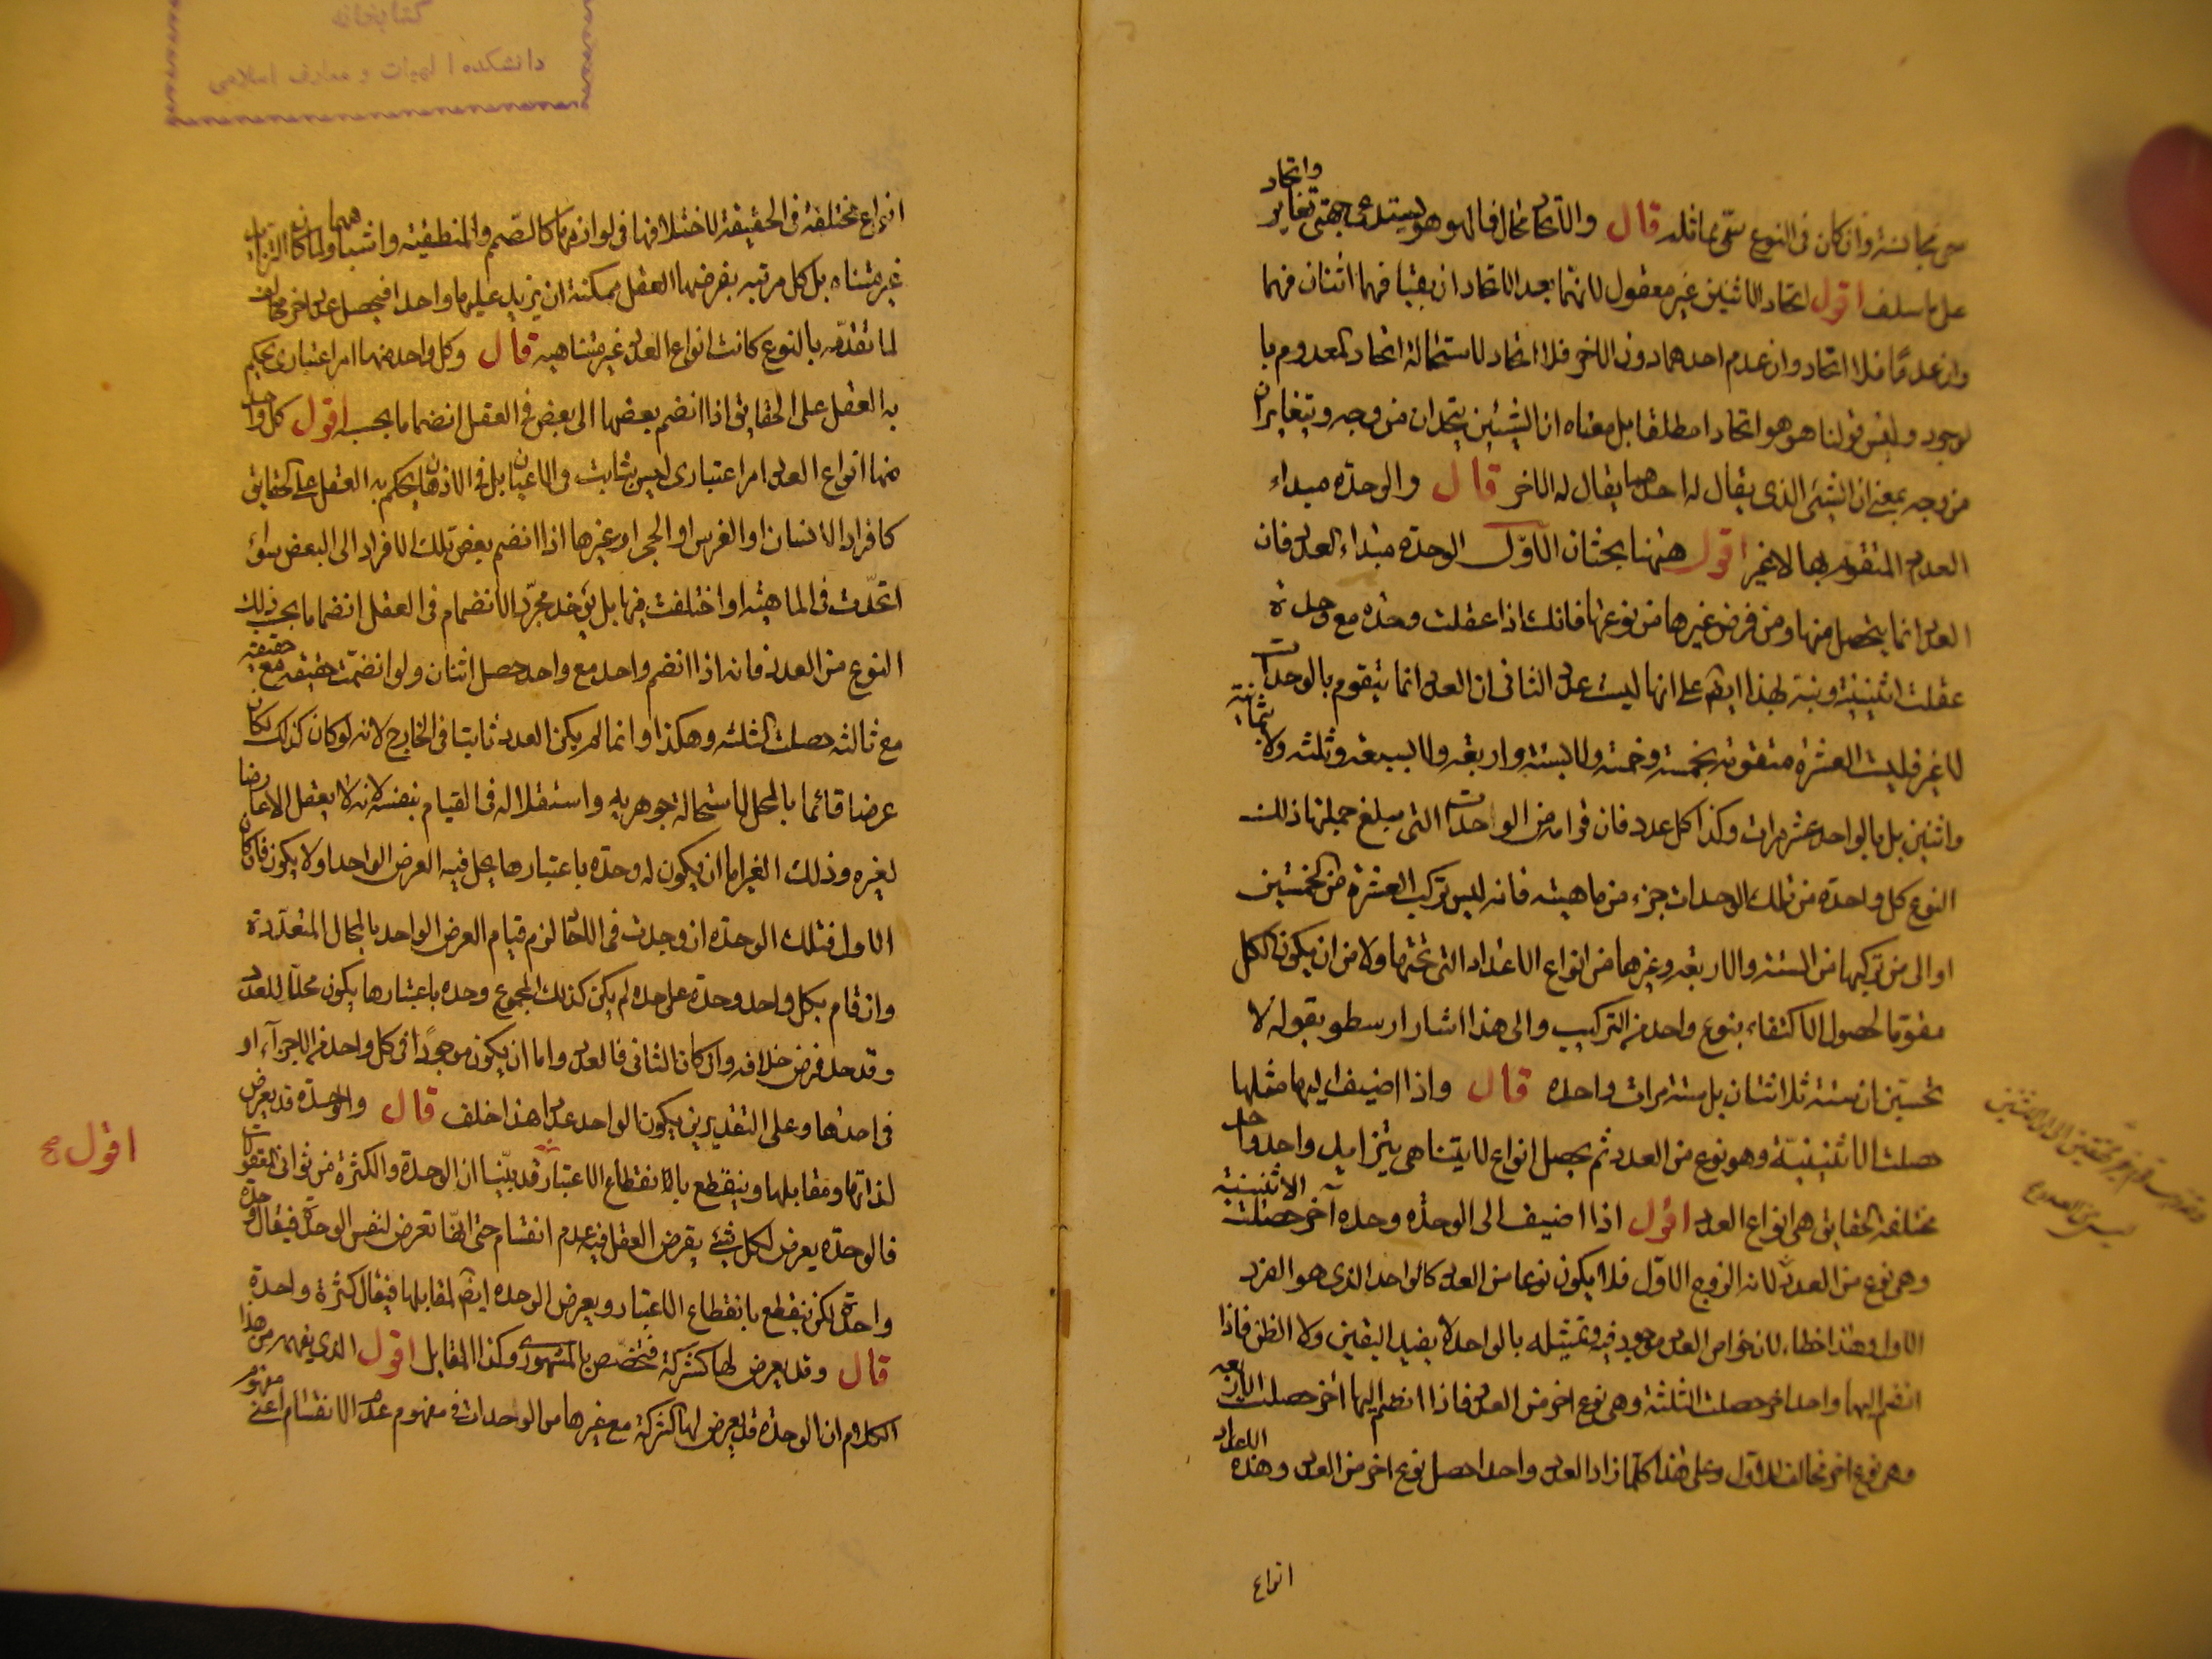 سمى مجانسة وان كان فى النوع سمّى مماثله قال والاتحاد محال فالهوهو يستدعى جهتى تغاير واتحاد
على ما سلف اقول اتحاد الاثنين غير معقول لانهما بعد الاتحاد ان بقيا فهما اثنان فهما
وان عدما فلا اتحاد وان عدم احدهما دون الاخر فلا اتحاد لاستحالة اتحاد المعدوم با
لوجود وليس قولنا هو هو اتحادا مطلقا بل معناه ان الشيئين يتحدان من وجه ويتغايران
من وجه بمعنى ان الشىء الذى يقال له احدهما يقال له الاخر قال والوحدة مبداء
العدد المتقوم بها لا غير اقول ههنا بحثان الاوّل الوحدة مبداء العدد فان
العدد انما يتحصل منها ومن فرض غيرها من نوعها فانك اذا عقلت وحده مع وحدة
عقلت اثنينية ونبّه بهذا ايضا على انها ليست عدد الثانى ان العدد انما يتقوم بالوحدات
لا غير فليست العشرة متقومة بخمسة وخمسة ولا بستة واربعة ولا بسبعة وثلثه ولا بثمانية
واثنين بل بالواحد عشر مرات وكذا كل عدد فان قوامه من الواحدات التى مبلغ جملتها ذلك
النوع كل واحدة من تلك الوحدات جزء من ماهيته فانه ليس تركب العشرة من الخمستين
اولى من تركبها من الستة والاربعة وغيرها من انواع الاعداد التى تحتها ولا من ان يكون الكل
مقوما لحصول الاكتفاء بنوع واحد من التركيب والى هذا اشار ارسطو بقوله لا
تحسبن ان ستة ثلاثتان بل ستة مرات واحدة قال واذا اضيف اليها مثلها
حصلت الاثنينيّة وهو نوع من العدد ثم يحصل انواع لا يتناهى بتزايد واحد واحد
مختلفة الحقايق هى انواع العدد اقول اذا اضيف الى الوحدة وحده اخرى حصلت الاثنينية
وهى نوع من العدد لانه الزوج الاوّل فلا يكون نوعا من العدد كالواحد الذى هو الفرد
الاول وهذا خطاء لان خواص العدد موجود فيه وتمثيله بالواحد لا يفيد اليقين ولا الظن فاذا
انضم اليها واحد اخر حصلت الثلثة وهى نوع اخر من العدد فاذا انضم اليها اخر حصلت الاربعة
وهى نوع اخر مخالف للاول وعلى هذا كلما زاد العدد واحدا حصل نوع اخر من العدد وهذه الاعداد
انواع
كتابخانه
دانشكده الهيات و معارف اسلامى
انواع مختلفة فى الحقيقة لاختلافها فى لوازمها كالصّمم والمنطقية واشباههما ولما كان التزايد
غير متناه بل كل مرتبه يفرضها العقل ممكنة ان يزيد عليها واحدا فيحصل عدد اخر مخالف
لما تقدّمه بالنوع كانت انواع العدد غير متناهيه قال وكل واحد منها امر اعتبارى يحكم
به العقل على الحقايق اذا انضم بعضها الى بعض فى العقل انضماما بحسبه اقول كل واحد
منها انواع العدد امر اعتبارى ليس بثابت فى الاعيان بل فى الاذهان يحكم به العقل على الحقايق
كافراد الانسان او الفرس او الحجر او غيرها اذا انضم بعض تلك الافراد الى البعض سواء
اتحدت فى الماهية او اختلفت فيها بل يؤخذ مجرّد الانضمام فى العقل انضماما بحسب ذلك
النوع من العدد فانه اذا انضم واحد مع واحد حصل اثنان ولو انضمت حقيقة مع حقيقة
مع ثالثة حصلت الثلثه وهكذا وانما لم يكن العدد ثابتا فى الخارج لانه لو كان كذلك لكان
عرضا قائما بالمحل لاستحالة جوهريه واستقلاله فى القيام بنفسه لانه لا يعقل الا عارضا
لغيره وذلك الغير اما ان يكون له وحدة باعتبارها يحل فيه العرض الواحد او لا يكون فان كان
الاول فتلك الوحدة ان وجدت فى الاحاد لزم قيام العرض الواحد بالمحال المتعددة
وان قام بكل واحد وحدة على حده لم يكن كذلك المجموع وحده باعتبارها يكون محلا للعدد
وقد حل فرض خلافه وان كان الثانى فالعدد واما ان يكون موجودًا فى كل واحد من الاجزآء او
فى احدها وعلى التقديرين يكون الواحد عددا هذا خلف قال والوحدة قد يعرض
لذاتها ومقابلها وينقطع بانقطاع الاعتبار قد بيّنا ان الوحدة والكثرة من ثوانى المعقولات
اقول صح
فالوحدة يعرض لكل شىء يفرض العقل فيه عدم انقسام حتى انها تعرض لنفس الوحدة فيقال وحدة
واحدة لكن ينقطع بانقطاع الاعتبار ويعرض الوحده ايضا لمقابلها فيقال كثرة واحدة
قال وقد يعرض لها كثركة فتخصّص بالمشهورى وكذا المقابل اقول الذى يفهم من هذا
الكلام ان الوحدة قد يعرض لها الشركة مع غيرها من الوحدات فى مفهوم عدم الانقسام اعنى مفهوم